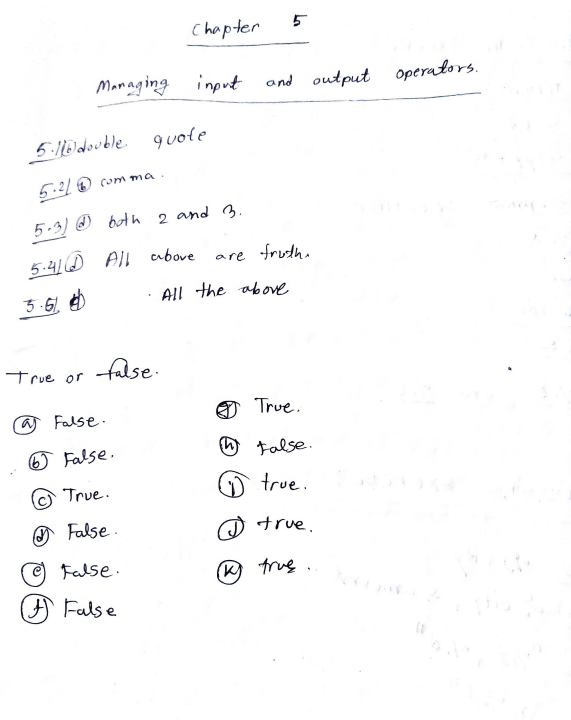 Chapter 5
Managing input and output operators.
5.1/ⓑ double quote
5.2/ ⓑ comma.
5.3/ ⓓ both 2 and 3.
5.4/ ⓓ All above are truth.
5.5/ ⓓ All the above
True or false.
ⓐ False.
ⓑ False.
ⓒ True.
ⓓ False.
ⓔ False.
ⓕ False
ⓖ True.
ⓗ False.
ⓘ true.
ⓙ true.
ⓚ true.